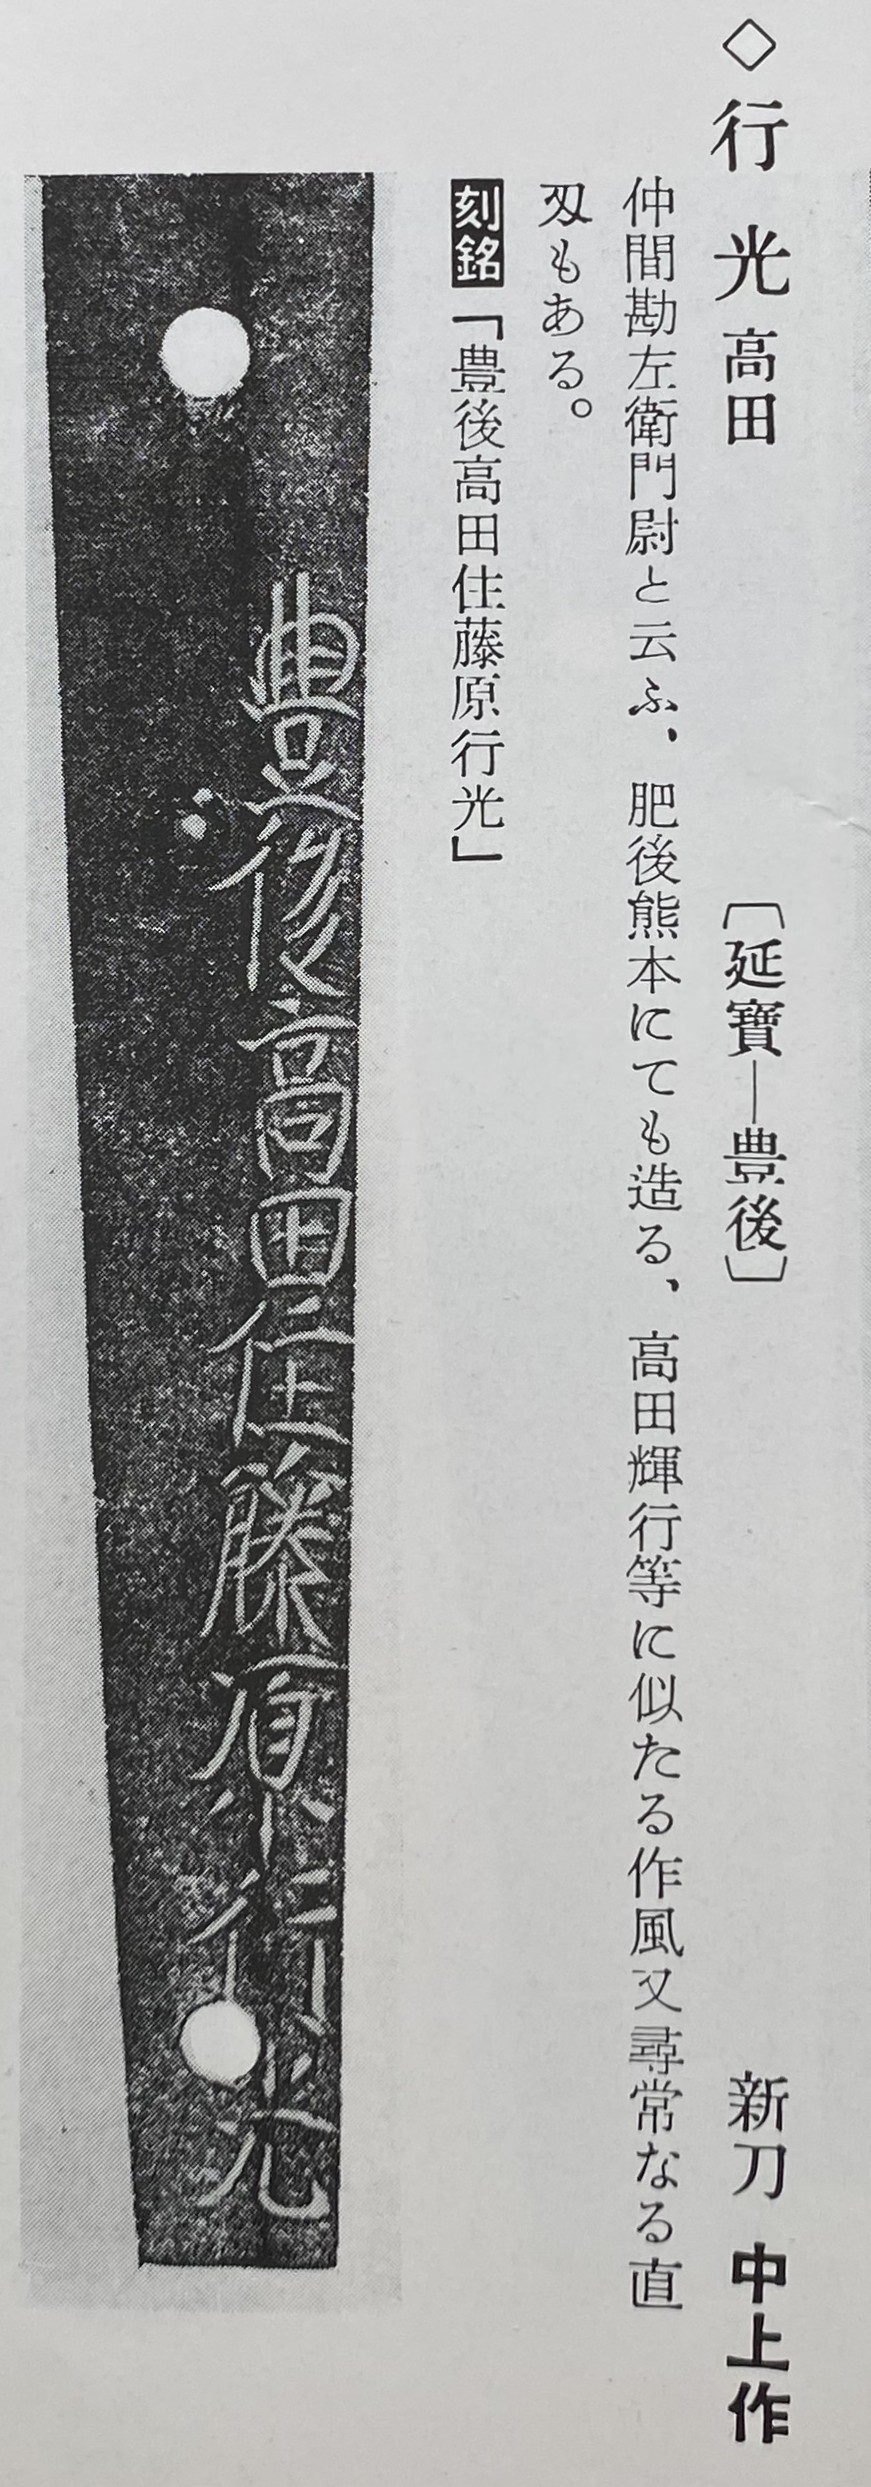 ◇行光 高田 〔延寶―豊後〕 新刀 中上作
仲間勘左衛門尉と云ふ、肥後熊本にても造る、高田輝行等に似たる作風又尋常なる直
刄もある。
刻銘「豊後高田住藤原行光」
豊後高田住藤原行光